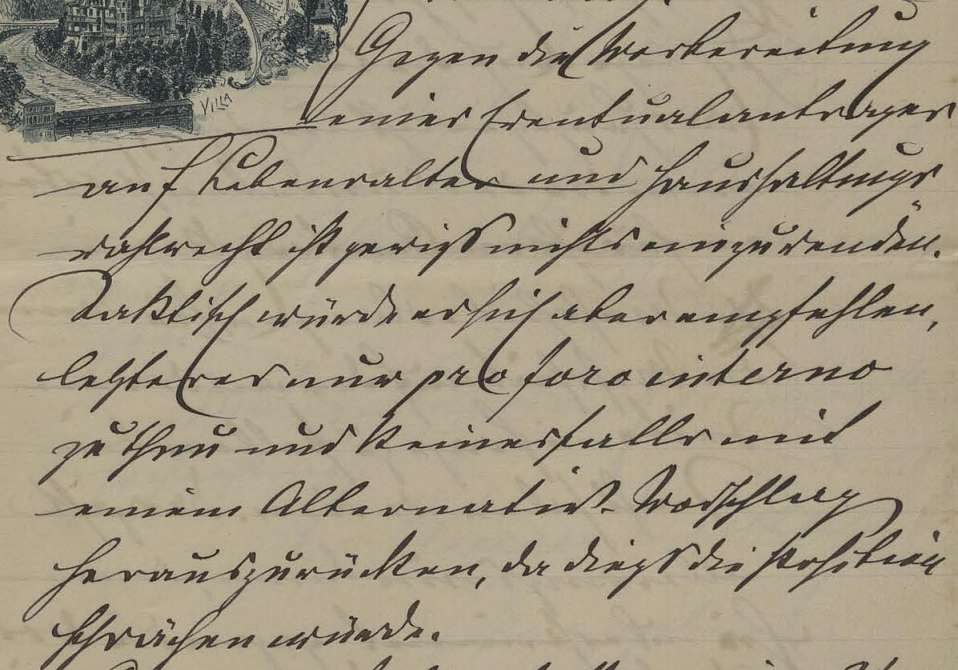 VILLA
Gegen die Vorbereitung
eines Eventualantrages
auf Lebensalter und Haushaltungs
wahlrecht ist gewiss nichts einzuwenden.
Taktisch würde es sich aber empfehlen,
letzteres nur pro foro interno
zu thun und keinesfalls mit
einem Alternativ-Vorschlag
herauszurücken, da diess die Position
schwächen würde.